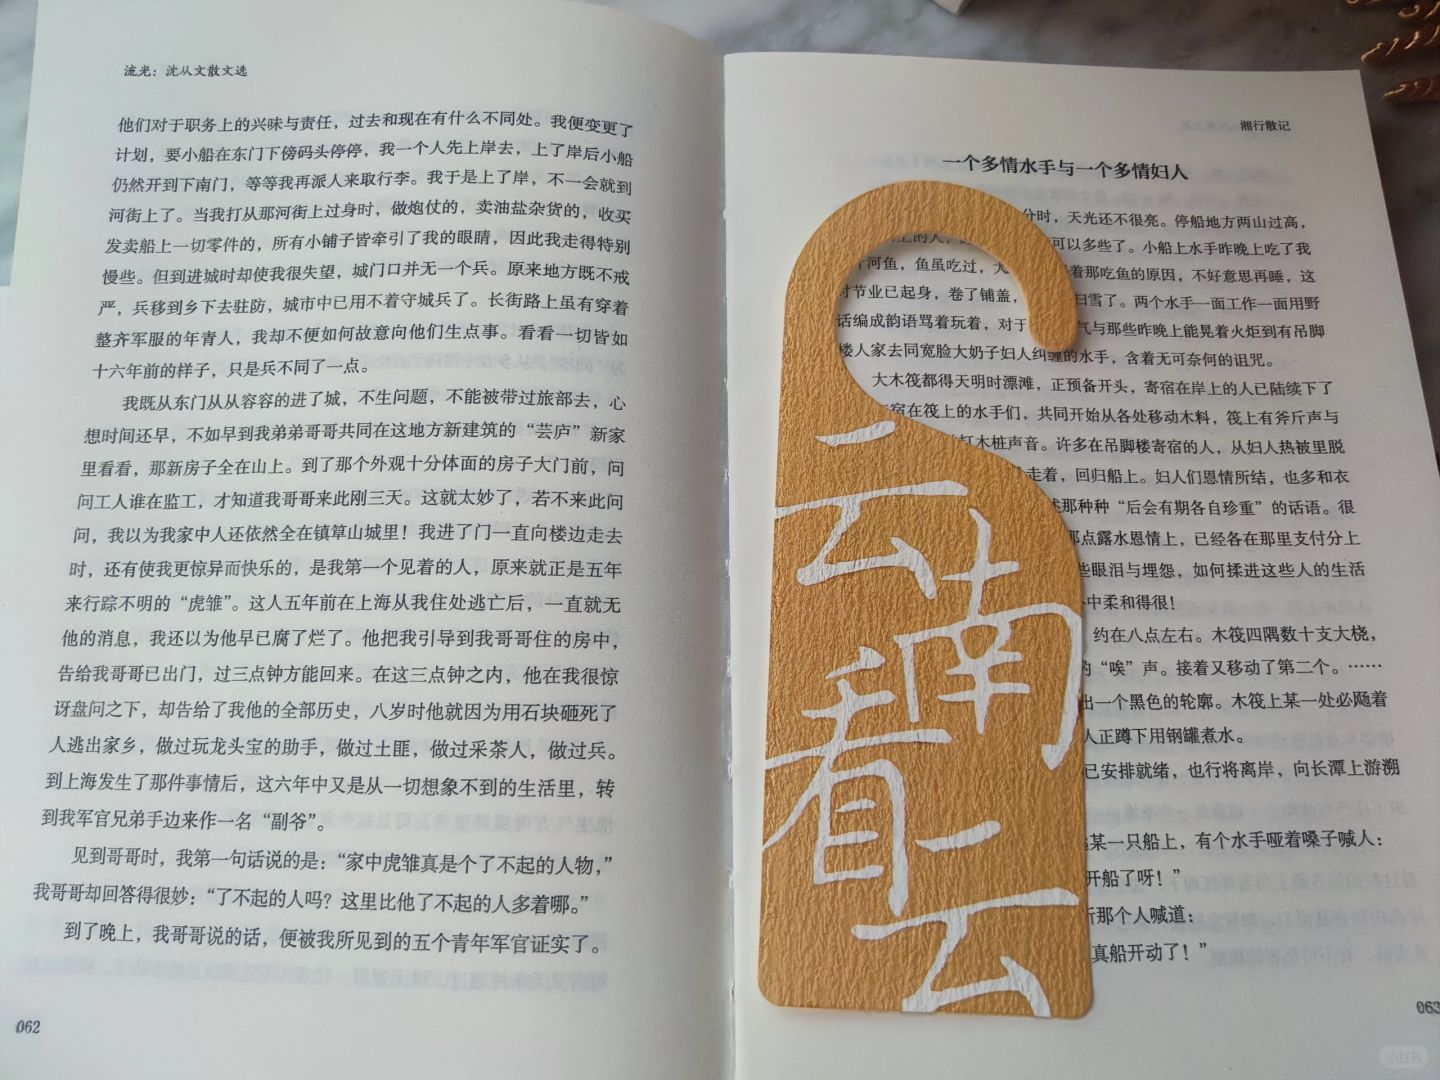 流光：沈从文散文选
他们对于职务上的兴味与责任，过去和现在有什么不同处。我便变更了
计划，要小船在东门下傍码头停停，我一个人先上岸去，上了岸后小船
仍然开到下南门，等等我再派人来取行李。我于是上了岸，不一会就到
河街上了。当我打从那河街上过身时，做炮仗的，卖油盐杂货的，收买
发卖船上一切零件的，所有小铺子皆牵引了我的眼睛，因此我走得特别
慢些。但到进城时却使我很失望，城门口并无一个兵。原来地方既不戒
严，兵移到乡下去驻防，城市中已用不着守城兵了。长街路上虽有穿着
整齐军服的年青人，我却不便如何故意向他们生点事。看看一切皆如
十六年前的样子，只是兵不同了一点。
我既从东门从从容容的进了城，不生问题，不能被带过旅部去，心
想时间还早，不如早到我弟弟哥哥共同在这地方新建筑的“芸庐”新家
里看看，那新房子全在山上。到了那个外观十分体面的房子大门前，问
问工人谁在监工，才知道我哥哥来此刚三天。这就太妙了，若不来此问
问，我以为我家中人还依然全在镇筸山城里！我进了门一直向楼边走去
时，还有使我更惊异而快乐的，是我第一个见着的人，原来就正是五年
来行踪不明的“虎雏”。这人五年前在上海从我住处逃亡后，一直就无
他的消息，我还以为他早已腐了烂了。他把我引导到我哥哥住的房中，
告给我哥哥已出门，过三点钟方能回来。在这三点钟之内，他在我很惊
讶盘问之下，却告给了我他的全部历史，八岁时他就因为用石块砸死了
人逃出家乡，做过玩龙头宝的助手，做过土匪，做过采茶人，做过兵。
到上海发生了那件事情后，这六年中又是从一切想象不到的生活里，转
到我军官兄弟手边来作一名“副爷”。
见到哥哥时，我第一句话说的是：“家中虎雏真是个了不起的人物，”
我哥哥却回答得很妙：“了不起的人吗？这里比他了不起的人多着哪。”
到了晚上，我哥哥说的话，便被我所见到的五个青年军官证实了。
062
湘行散记
一个多情水手与一个多情妇人
分时，天光还不很亮。停船地方两山过高，
上的人，可以多些了。小船上水手昨晚上吃了我
河鱼，鱼虽吃过，大着那吃鱼的原因，不好意思再睡，这
时节业已起身，卷了铺盖，扫雪了。两个水手一面工作一面用野
话编成韵语骂着玩着，对于气与那些昨晚上能晃着火炬到有吊脚
楼人家去同宽脸大奶子妇人纠缠的水手，含着无可奈何的诅咒。
大木筏都得天明时漂滩，正预备开头，寄宿在岸上的人已陆续下了
宿在筏上的水手们，共同开始从各处移动木料，筏上有斧斤声与
打木桩声音。许多在吊脚楼寄宿的人，从妇人热被里脱
走着，回归船上。妇人们恩情所结，也多和衣
那种种“后会有期各自珍重”的话语。很
那点露水恩情上，已经各在那里支付分上
些眼泪与埋怨，如何揉进这些人的生活
中柔和得很！
约在八点左右。木筏四隅数十支大桡，
的“唉”声。接着又移动了第二个。……
出一个黑色的轮廓。木筏上某一处必飏着
人正蹲下用钢罐煮水。
已安排就绪，也行将离岸，向长潭上游溯
某一只船上，有个水手哑着嗓子喊人：
开船了呀！”
那个人喊道：
真船开动了！”
063
云
南
看
云
小红书